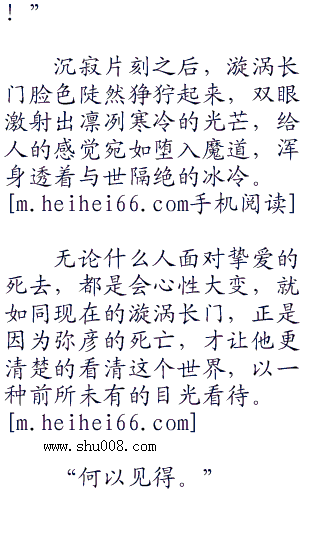 ！”
沉寂片刻之后，漩涡长
门脸色陡然狰狞起来，双眼
激射出凛冽寒冷的光芒，给
人的感觉宛如堕入魔道，浑
身透着与世隔绝的冰冷。
[m.heihei66.com手机阅读]
无论什么人面对挚爱的
死去，都是会心性大变，就
如同现在的漩涡长门，正是
因为弥彦的死亡，才让他更
清楚的看清这个世界，以一
种前所未有的目光看待。
[m.heihei66.com]
www.shu008.com
“何以见得。”